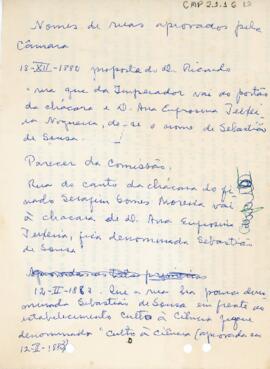 CMP 2.1.1 6 12
Nomes de ruas aprovados pela
Câmara
18-XII-1880 proposta do Dr. Ricardo
"rua que da Imperador vai ao portão
da chácara e D. Ana Euprosina Teixei
ra Nogueira, de-se o nome de Sebastião
de Sousa.
Parecer da Comissão,
Rua do canto da chácara do fi
nado Serafim Gomes Moreira vai
à chácara de D. Ana Euprosina
Teixeira, fica denominada Sebastião
de Sousa
12-II-1883. Que a rua
minada Sebastião de Sousa em frente ao
estabelecimento Culto à Ciência fique
denominada "Culto à Ciência (aprovada em
12-II-1883)